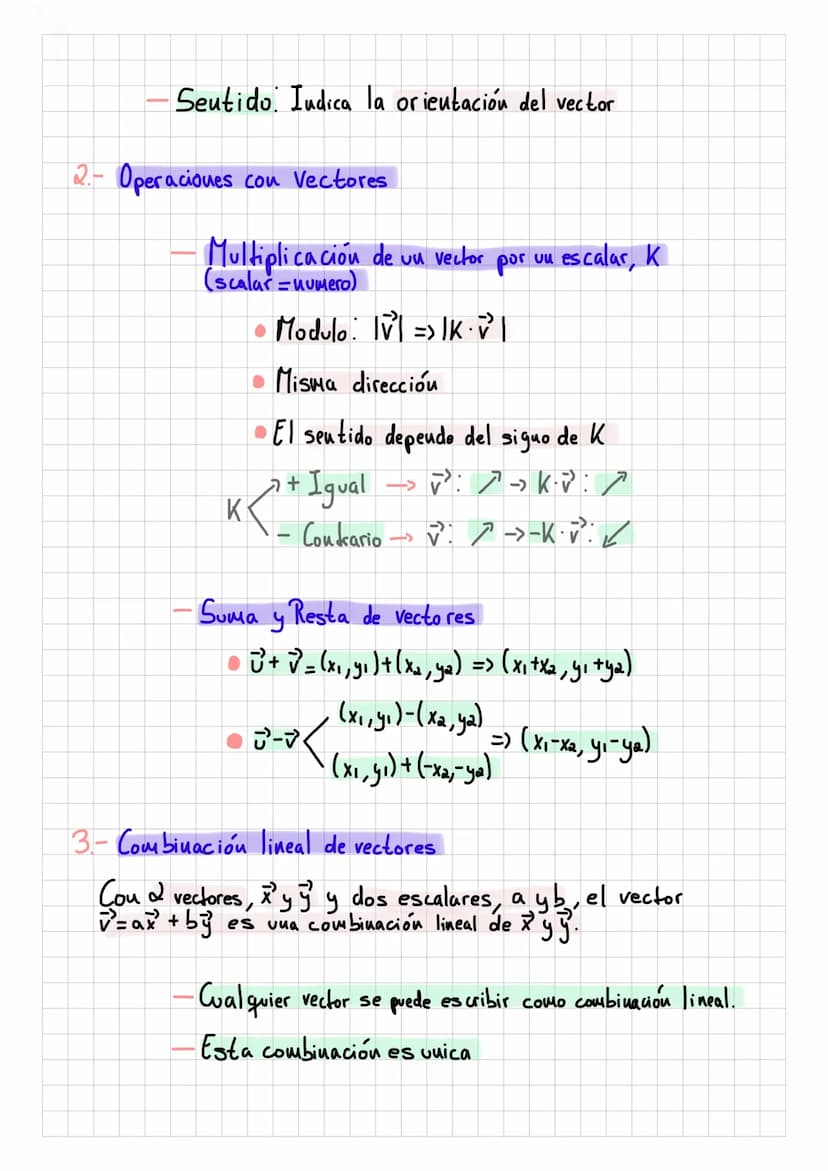 — Sentido: Indica la orientación del vector
2.- Operaciones con Vectores
— Multiplicación de un vector por un escalar, K
(scalar = numero)
• Modulo: |v⃗| => |K · v⃗|
• Misma dirección
• El sentido depende del signo de K
K + Igual → v⃗: ↗ → K·v⃗: ↗
- Contrario → v⃗: ↗ → -K·v⃗: ↙
— Suma y Resta de vectores
• u⃗ + v⃗ = (x₁,y₁)+(x₂,y₂) => (x₁+x₂, y₁+y₂)
(x₁,y₁)-(x₂,y₂)
• u⃗-v⃗ => (x₁-x₂, y₁-y₂)
(x₁,y₁)+(-x₂,-y₂)
3.- Combinación lineal de vectores
Con 2 vectores, x⃗ y y⃗ y dos escalares, a y b, el vector
v⃗=ax⃗ + by⃗ es una combinación lineal de x⃗ y y⃗.
— Cualquier vector se puede escribir como combinación lineal.
— Esta combinación es unica